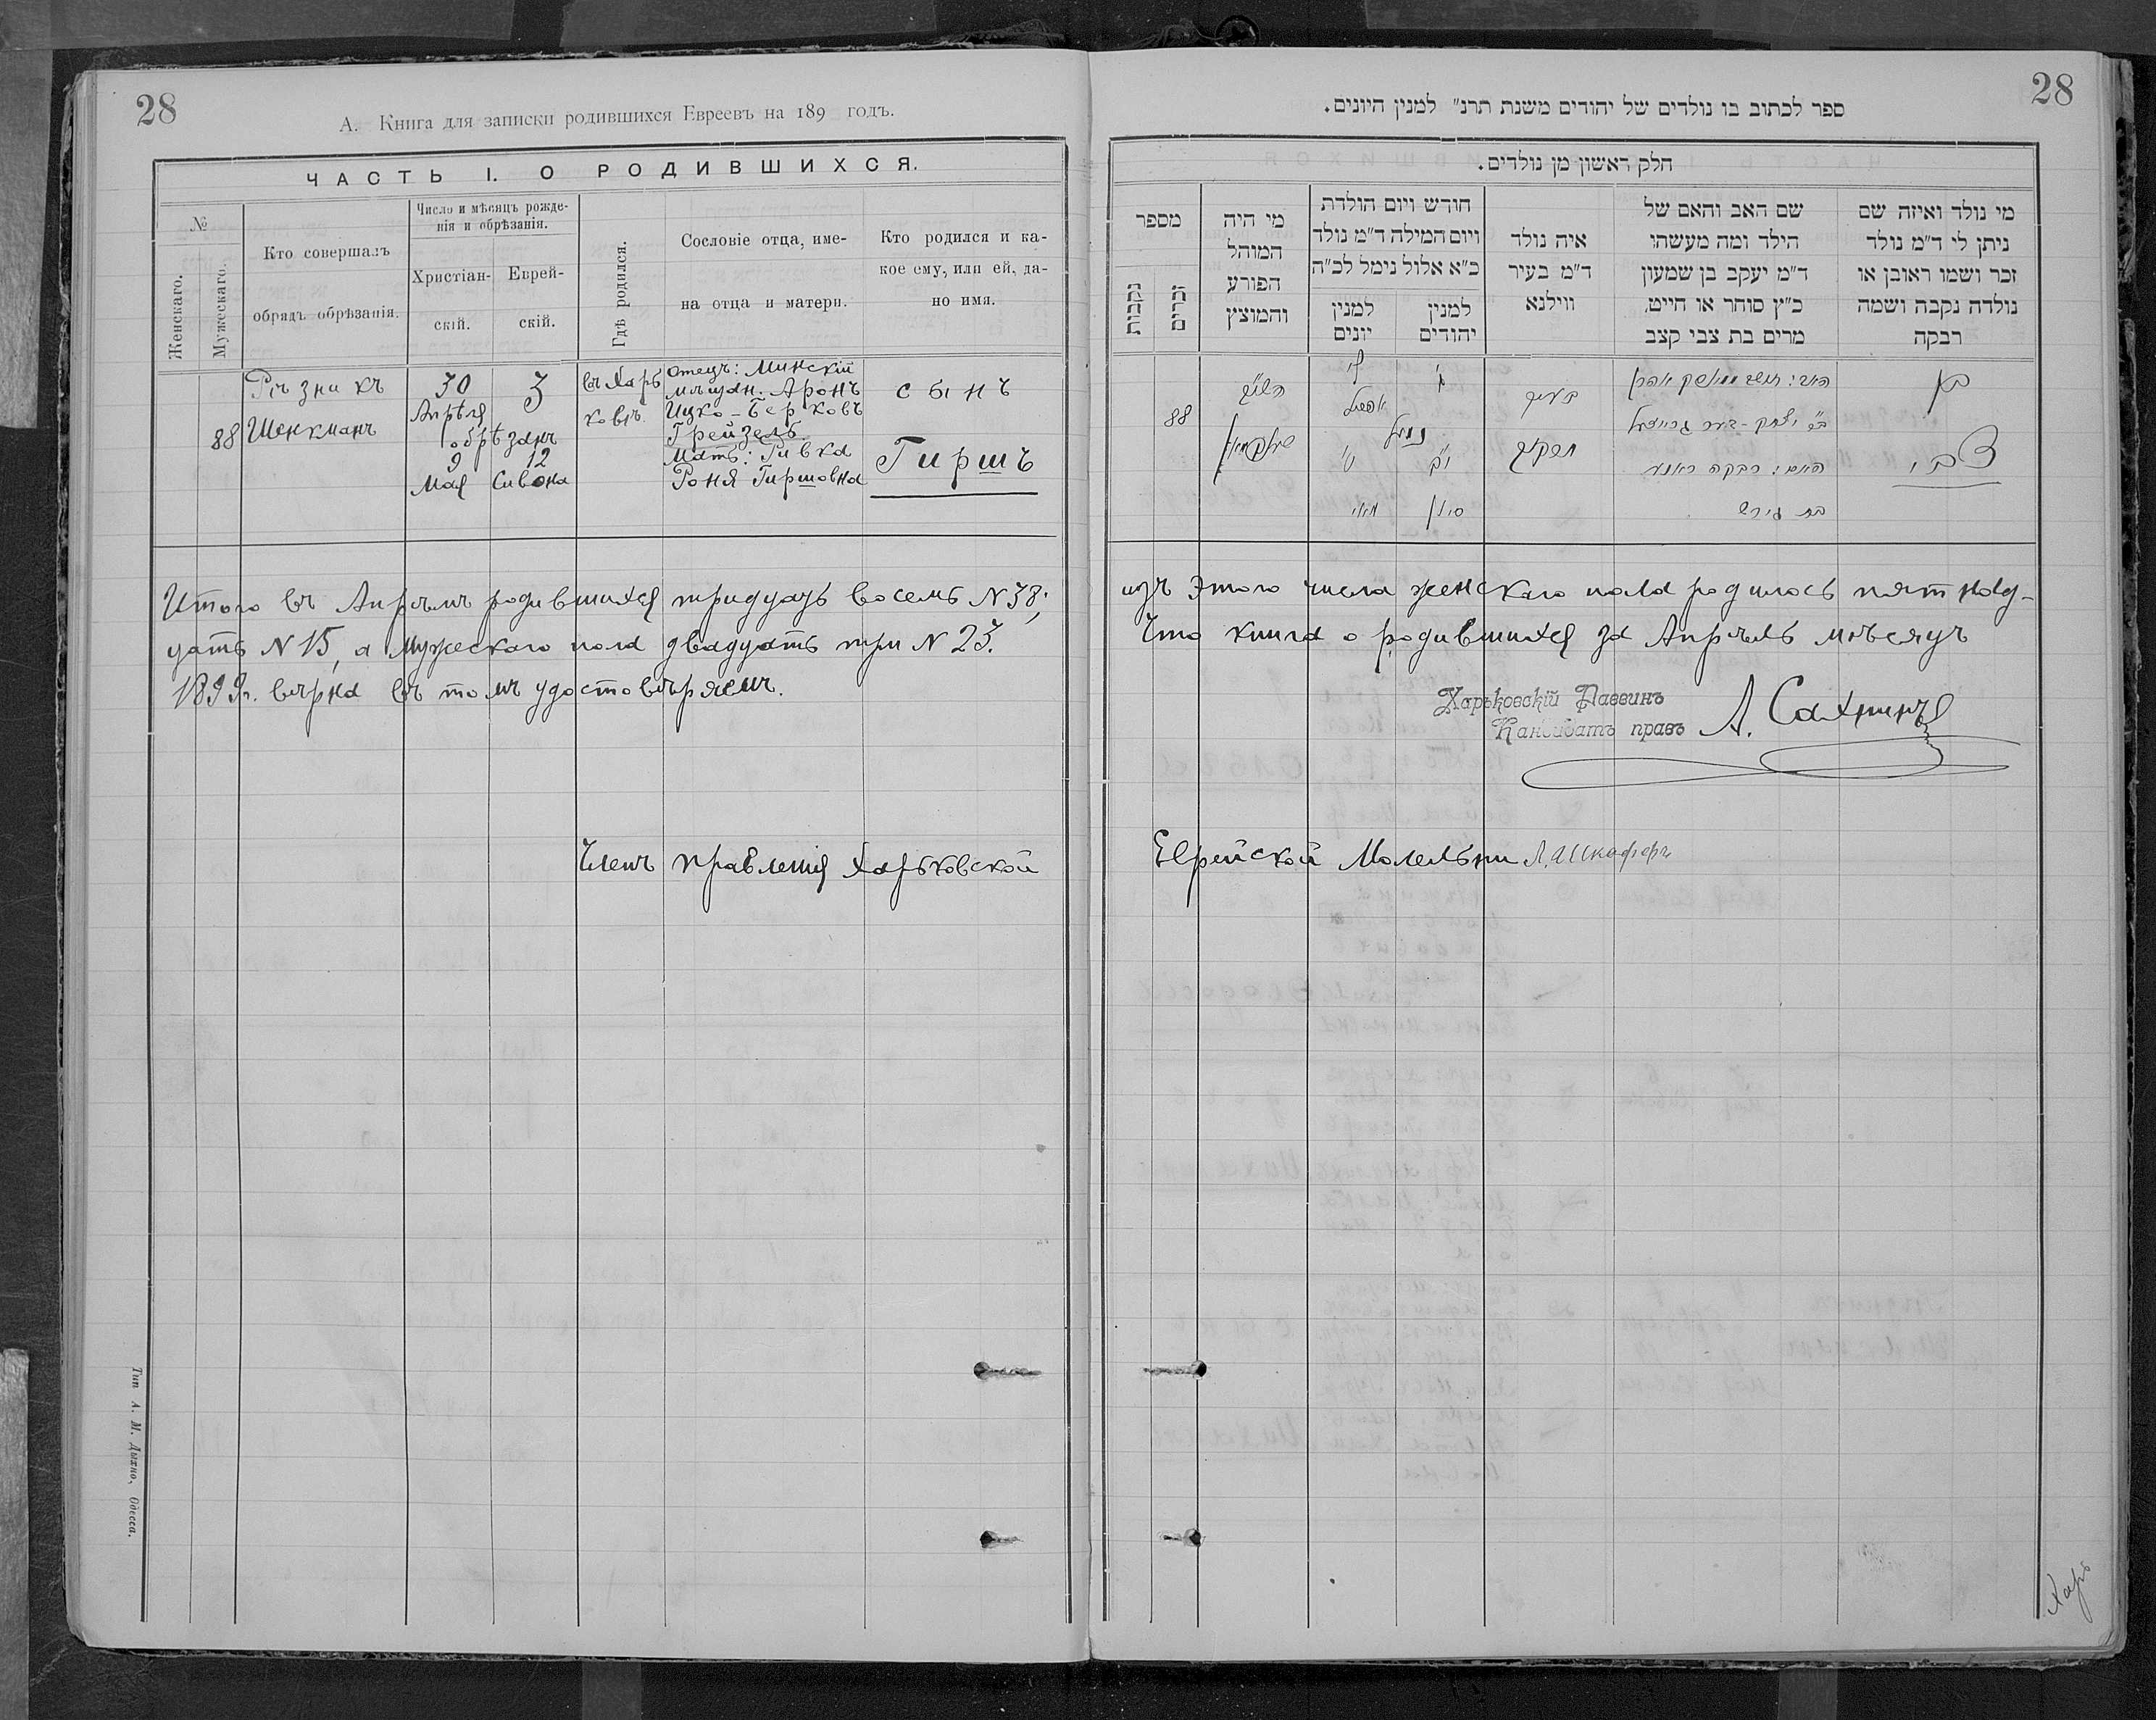 28
А. Книга для записки родившихся Евреевъ на 189 годъ.
ЧАСТЬ I. О РОДИВШИХСЯ.
№
Женскаго.
Мужескаго.
Кто совершалъ
обрядъ обрѣзанія.
Число и мѣсяцъ рожде-
нія и обрѣзанія.
Христіан-
скій.
Еврей-
скій.
Гдѣ родился.
Сословіе отца, име-
на отца и матери.
Кто родился и ка-
кое ему, или ей, да-
но имя.
88
Рѣзникъ
Шенкманъ
30
Апрѣля
обрѣзанъ
9
Мая
3
12
Сивона
въ Харь
ковѣ
Отецъ: Минскій
мѣщан. Аронъ
Ицко-Берковъ
Грейзель
Мать: Ривка
Роня Гиршовна
сынъ
Гиршъ
Итого въ Апрѣлѣ родившихся тридцать восемь N 38;
цать N 15, а мужескаго пола двадцать три N 23.
1899г. вѣрна въ томъ удостовѣряемъ.
Членъ правленія Харьковской
Тип А. М. Дыхно, Одесса.
28
ספר לכתוב בו נולדים של יהודים משנת תרנ״ למנין היונים.
חלק ראשון מן נולדים.
מספר
נקבות
זכרים
מי היה
המוהל
הפורע
והמוצץ
חודש ויום הולדת
ויום המילה ד״מ נולד
כ״א אלול נימל לכ״ה
למנין
יונים
למנין
יהודים
איה נולד
ד״מ בעיר
ווילנא
שם האב והאם של
הילד ומה מעשהו
ד״מ יעקב בן שמעון
כ״ץ סוחר או חייט,
מרים בת צבי קצב
מי נולד ואיזה שם
ניתן לי ד״מ נולד
זכר ושמו ראובן או
נולדה נקבה ושמה
רבקה
88
השו״ב
שענקמאן
ל׳
אפריל
נימול
ט׳
מאי
ג׳
י״ב
סיון
בעיר
חארקוב
האב:
אהרן
ב״ר יצחק-בער גרייזעל
האם: רבקה ראניע
בת הירש
בן
צבי
изъ этого числа женскаго пола родилось пятнад-
Что книга о родившихся за Апрѣль мѣсяцъ
Харьковскій Раввинъ
Кандидатъ правъ А. Сахнинъ
Еврейской Молельни
Харь